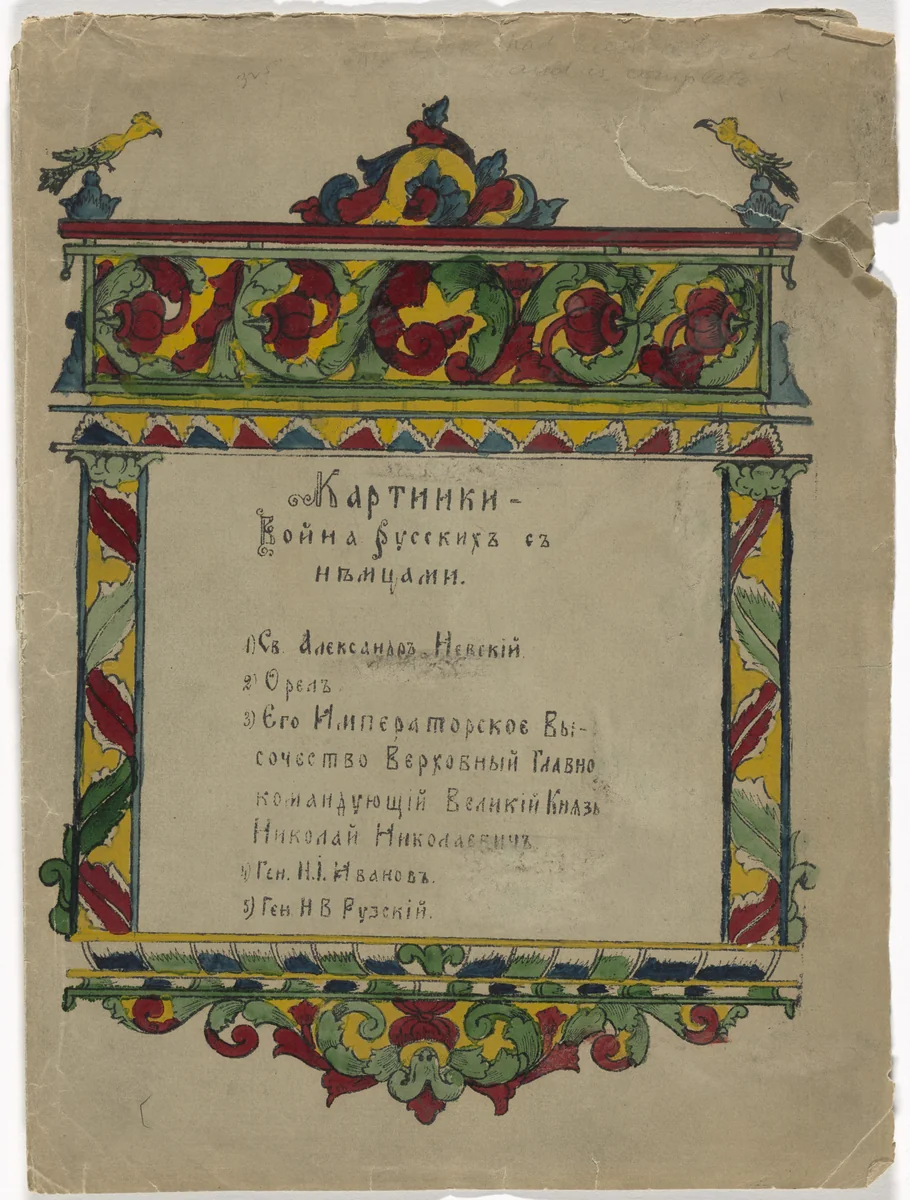 and is complete
Картинки -
Война Русскихъ съ
нѣмцами.
1) Св. Александръ Невскій
2) Орелъ
3) Его Императорское Вы-
сочество Верховный Главно
командующій Великій Князь
Николай Николаевичъ
4) Ген. Н.І. Ивановъ.
5) Ген Н В Рузскій.